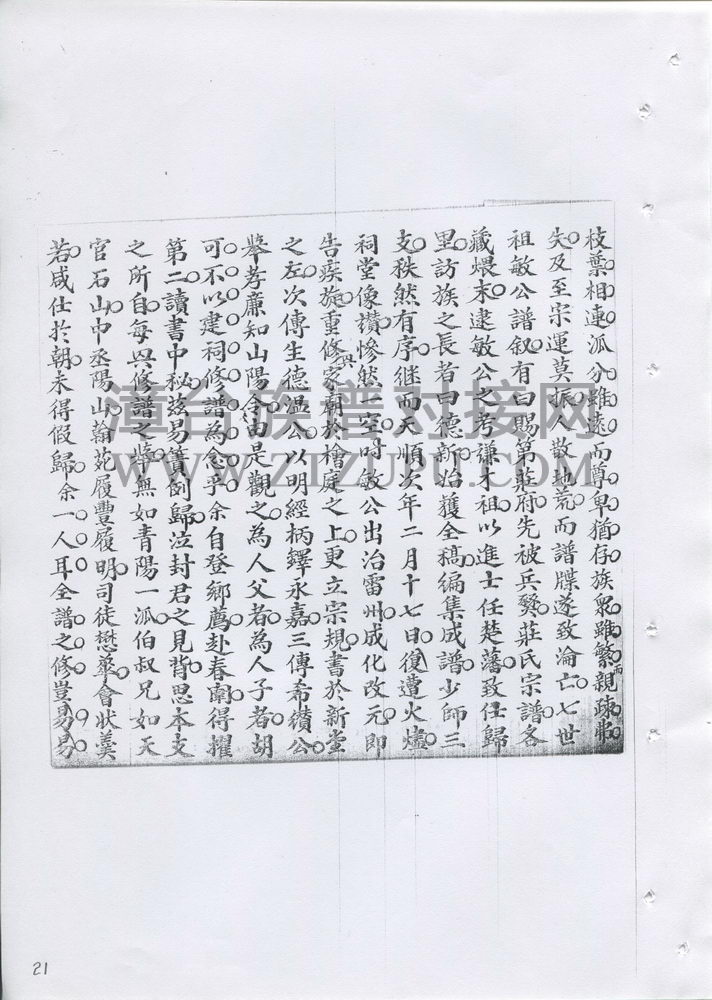 枝葉相連派分雖遠而尊卑猶存族衆雖繁而親疎
失及至宗運莫振人散地荒而譜牒遂致淪亡七世
祖敏公譜叙有曰賜第莊府先被兵燹莊氏宗譜各
藏煨末逮敏公之考謙木祖以進士任楚藩致任歸
里訪族之長者曰德新始獲全稿編集成譜少師三
支秩然有序继而天順次年二月十七日復遭火燼
祠堂像讃慘然一空时敏公出治雷州成化改元即
告疾旋重修家廟於檜庭之上更立宗規書於新堂
之左次傳生德温公以明經柄鐸永嘉三傳希績公
舉孝廉知山陽令由是觀之為人父者為人子者胡
可不以建祠修譜為念乎余自登鄉薦赴春闈得擢
第二讀書中秘兹易簀倒歸泣封君之見背思本支
之所自每與修譜之嗟無如青陽一派伯叔兄如天
官石山中丞陽山翰苑履豐履明司徒懋華會狀羹
若咸仕於朝未得假歸余一人耳全譜之修豈易易
漳台族谱对接网
WWW.ZTZUPU.COM
21